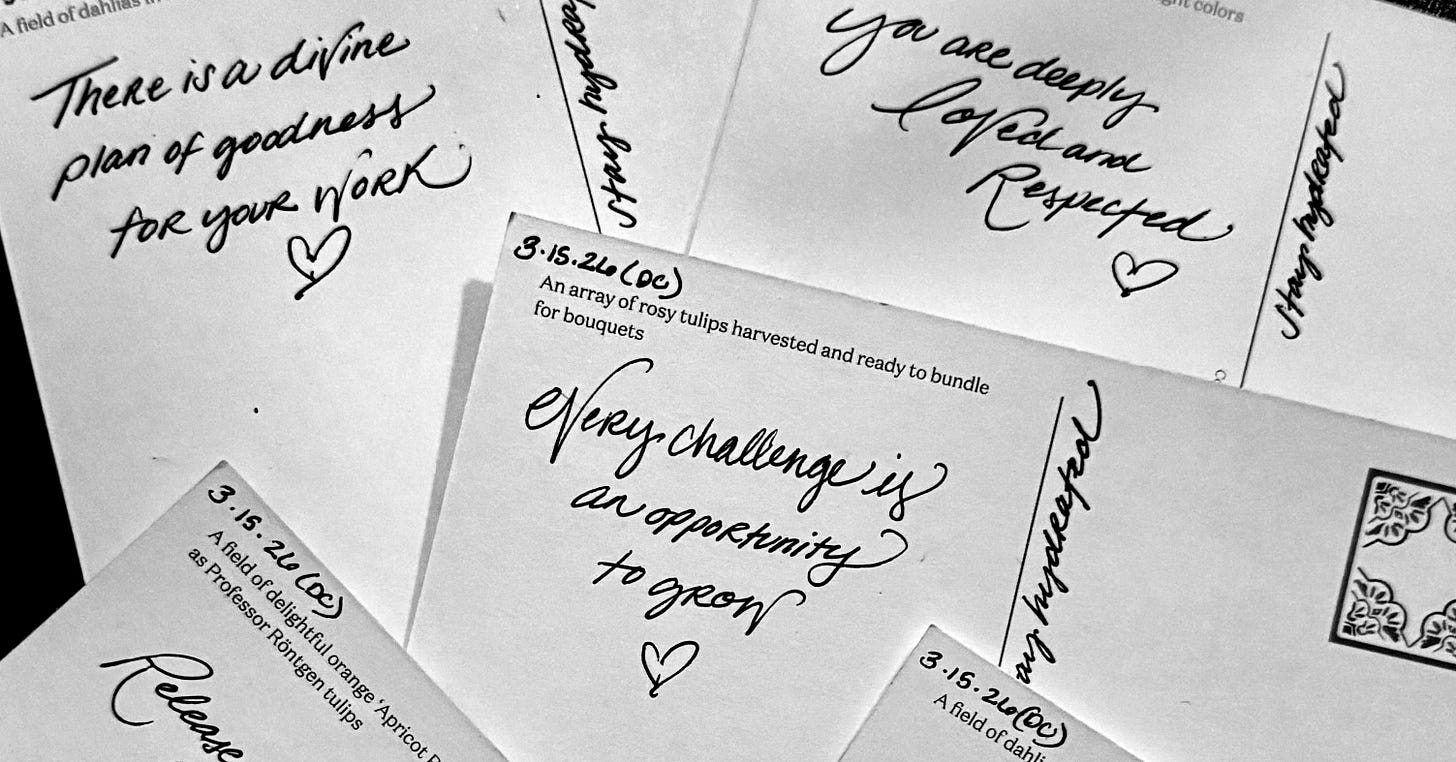 A field of dahlias
There is a divine
plan of goodness
for your work
stay hydrea
ght colors
you are deeply
loved and
Respected
Stay hydrated
3.15.26 (DC)
An array of rosy tulips harvested and ready to bundle
for bouquets
Every challenge is
an opportunity
to grow
ay hydrated
3.15.26 (DC)
A field of delightful orange 'Apricot
as Professor Röntgen tulips
Release
3.15.26 (DC)
A field of dahli